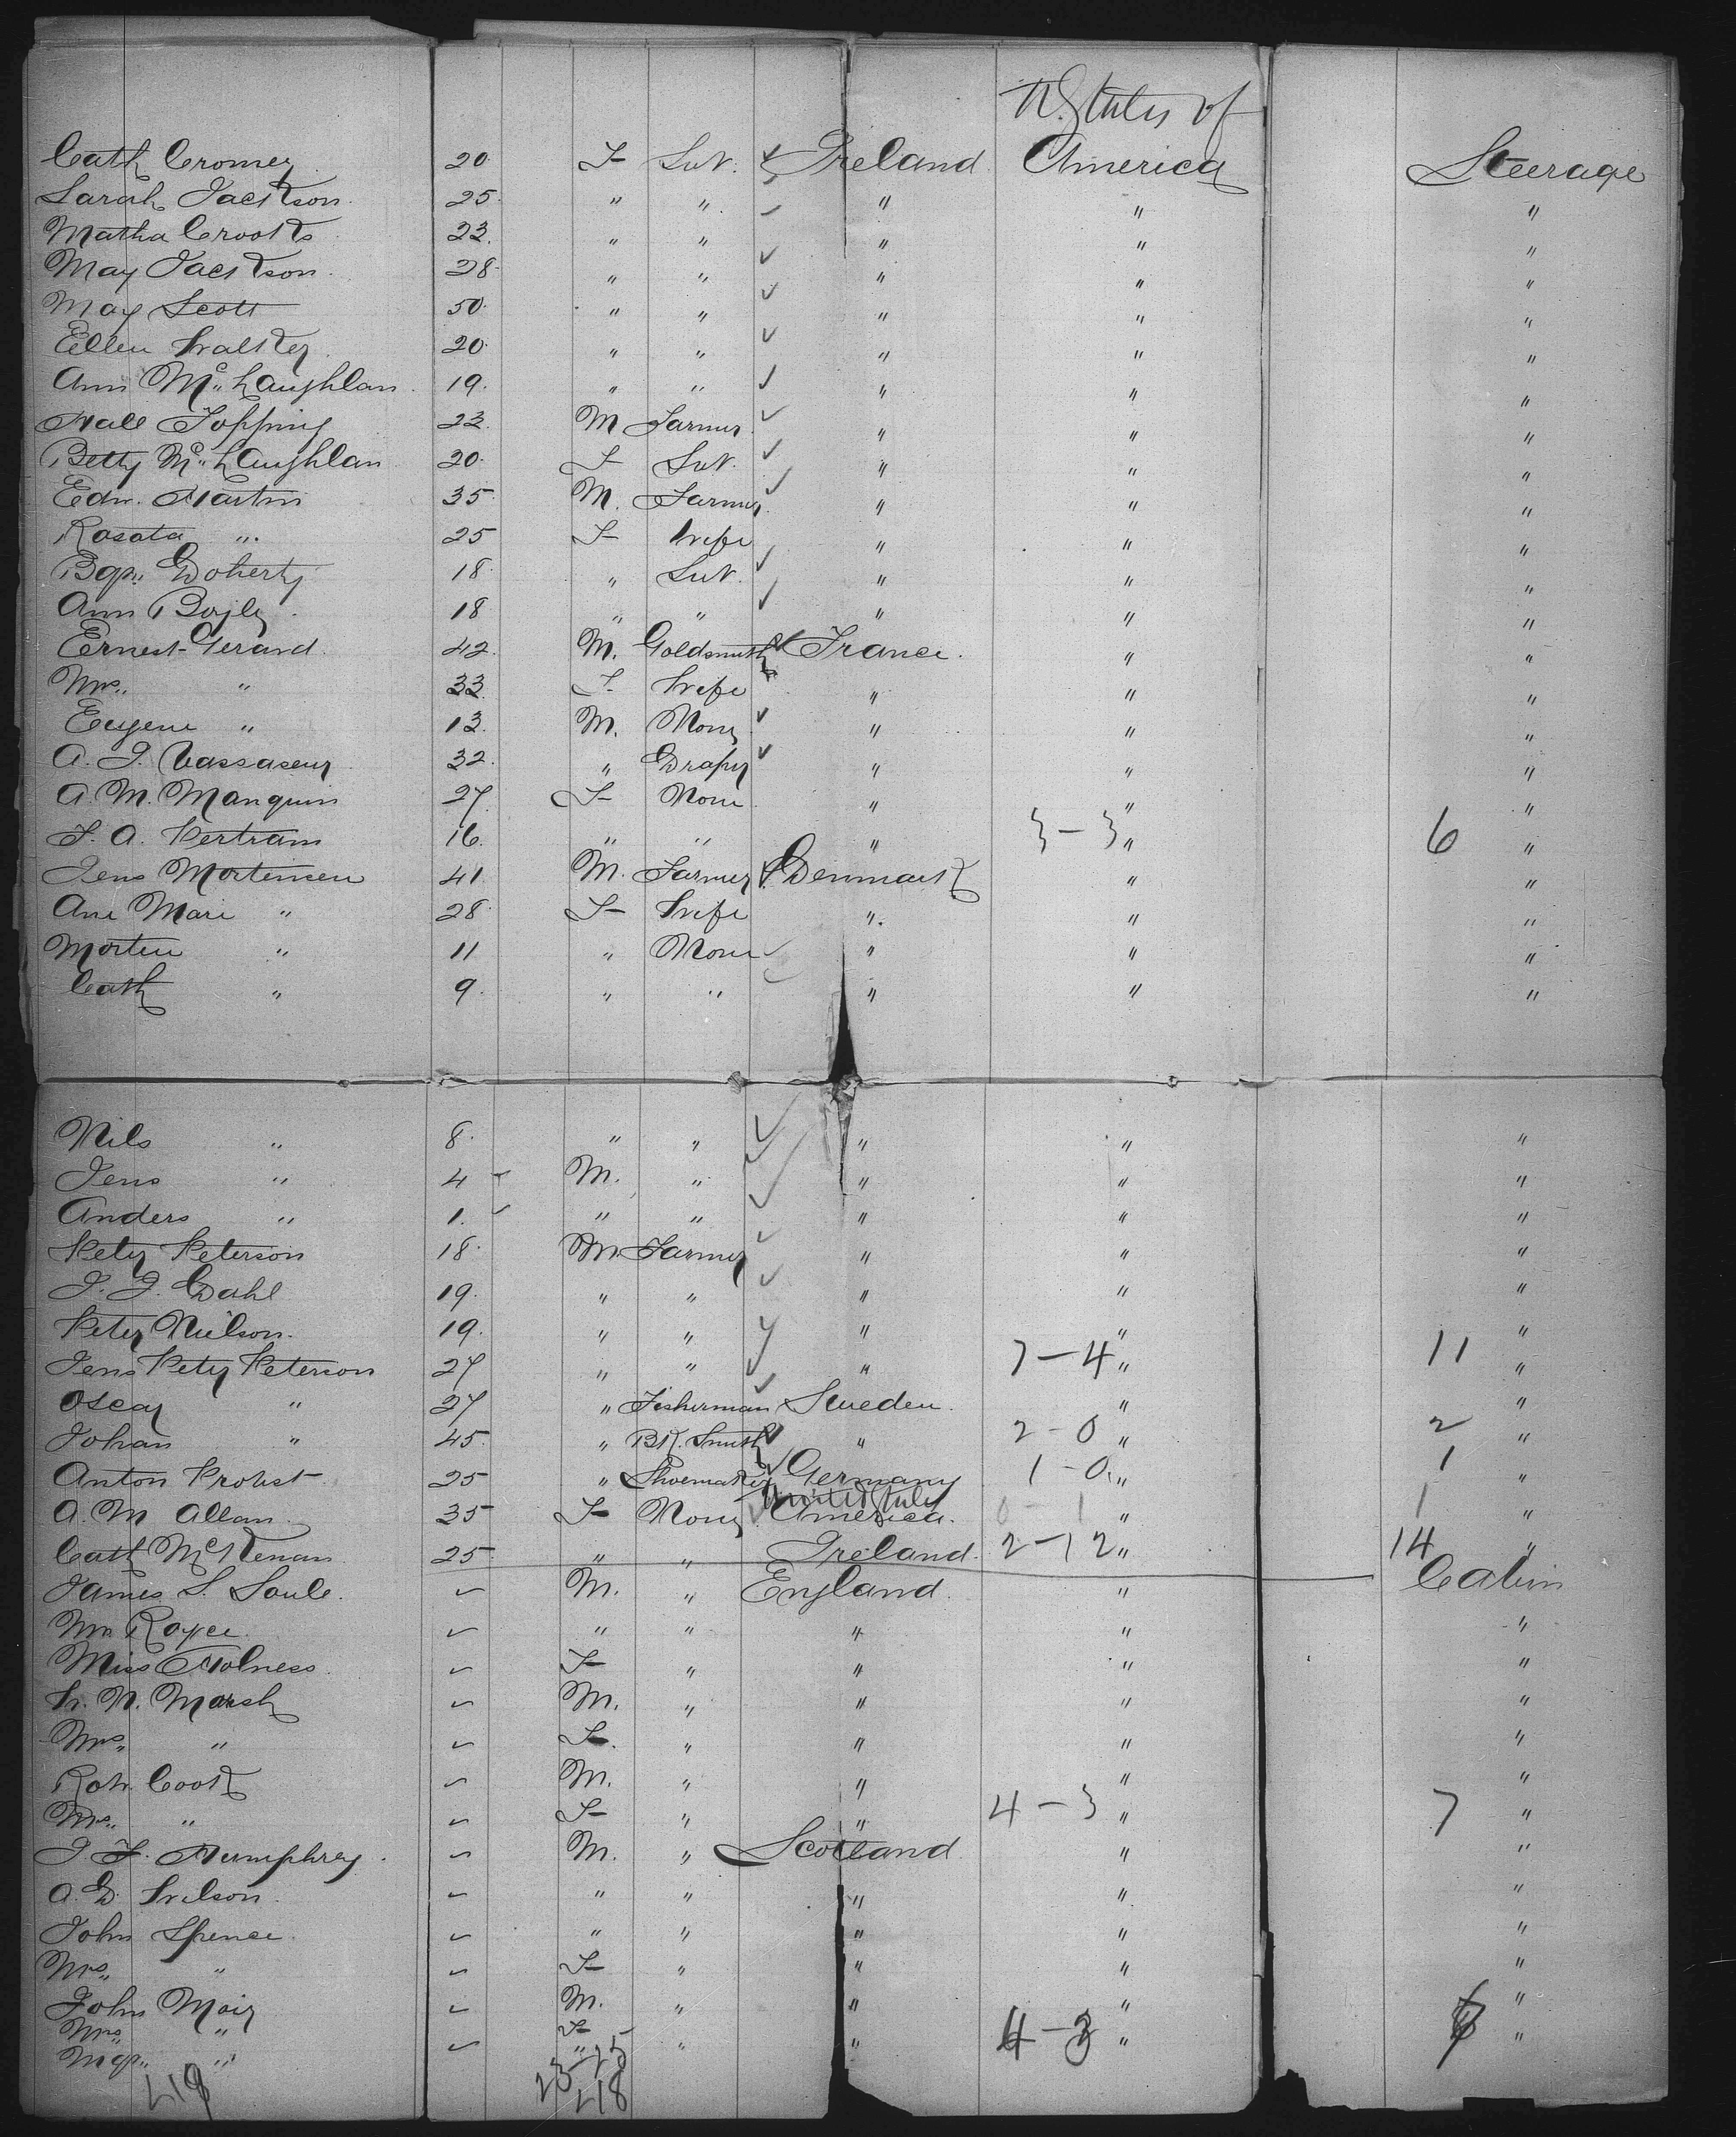 U. States of
Cath Cromey 20 F Serv. Ireland America Steerage
Sarah Jackson 25 " " " " "
Matha Crooks 23. " " " " "
May Jackson 28 " " " " "
May Scott 50 " " " " "
Ellen Walker 20 " " " " "
Ann McLaughlan 19. " " " " "
Hall Topping 22 M Farmer " " "
Betty McLaughlan 20 F Serv. " " "
Edw. Martin 35 M. Farmer " " "
Rosata " 25 F Wife " " "
Bgt. Doherty 18 " Serv. " " "
Ann Boyle 18 " " " " "
Ernest Gerard 42 M. Goldsmith France. " "
Mrs. " 33 F Wife " " "
Eugene " 13 M. None " " "
A. J. Vassaseur 32 " Draper " " "
A. M. Manquin 27 F None " " "
F. A. Pertram 16 " " " 3-3 " 6 "
Jens Mortensen 41 M. Farmer Denmark " "
Ane Mari " 28 F Wife " " "
Morten " 11 " None " " "
Cath " 9. " " " " "
Nils " 8. " " " " "
Jens " 4 M. " " " "
Anders " 1. " " " " "
Peter Peterson 18 M. Farmer " " "
J. J. Dahl 19. " " " " "
Peter Nielson. 19. " " " " "
Jens Peter Peterson 27 " " " 7-4 " 11 "
Oscar " 27 " Fisherman Sweden. " "
Johan " 45 " Bk. Smith " 2-0 " 2 "
Anton Probst 25 " Shoemaker Germany 1-0 " 1 "
United States
A. M. Allan. 35 F None America. 0-1 " 1 "
Cath McKenan 25 " " Ireland. 2-12 " 14 "
James S. Soule. M. " England. " Cabin
Mr. Royce. " " " " "
Miss Holness. F " " " "
W. N. Marsh M. " " " "
Mrs. " F. " " " "
Robt. Cook M. " " " "
Mrs. " F " " 4-3 " 7 "
J. F. Humphrey. M. " Scotland " "
A. D. Wilson. " " " " "
John Spence. " " " " "
Mrs. " F " " " "
John Moir M. " " " "
Mrs. " F " " 4-3 " 7 "
" "
219 23-25
218